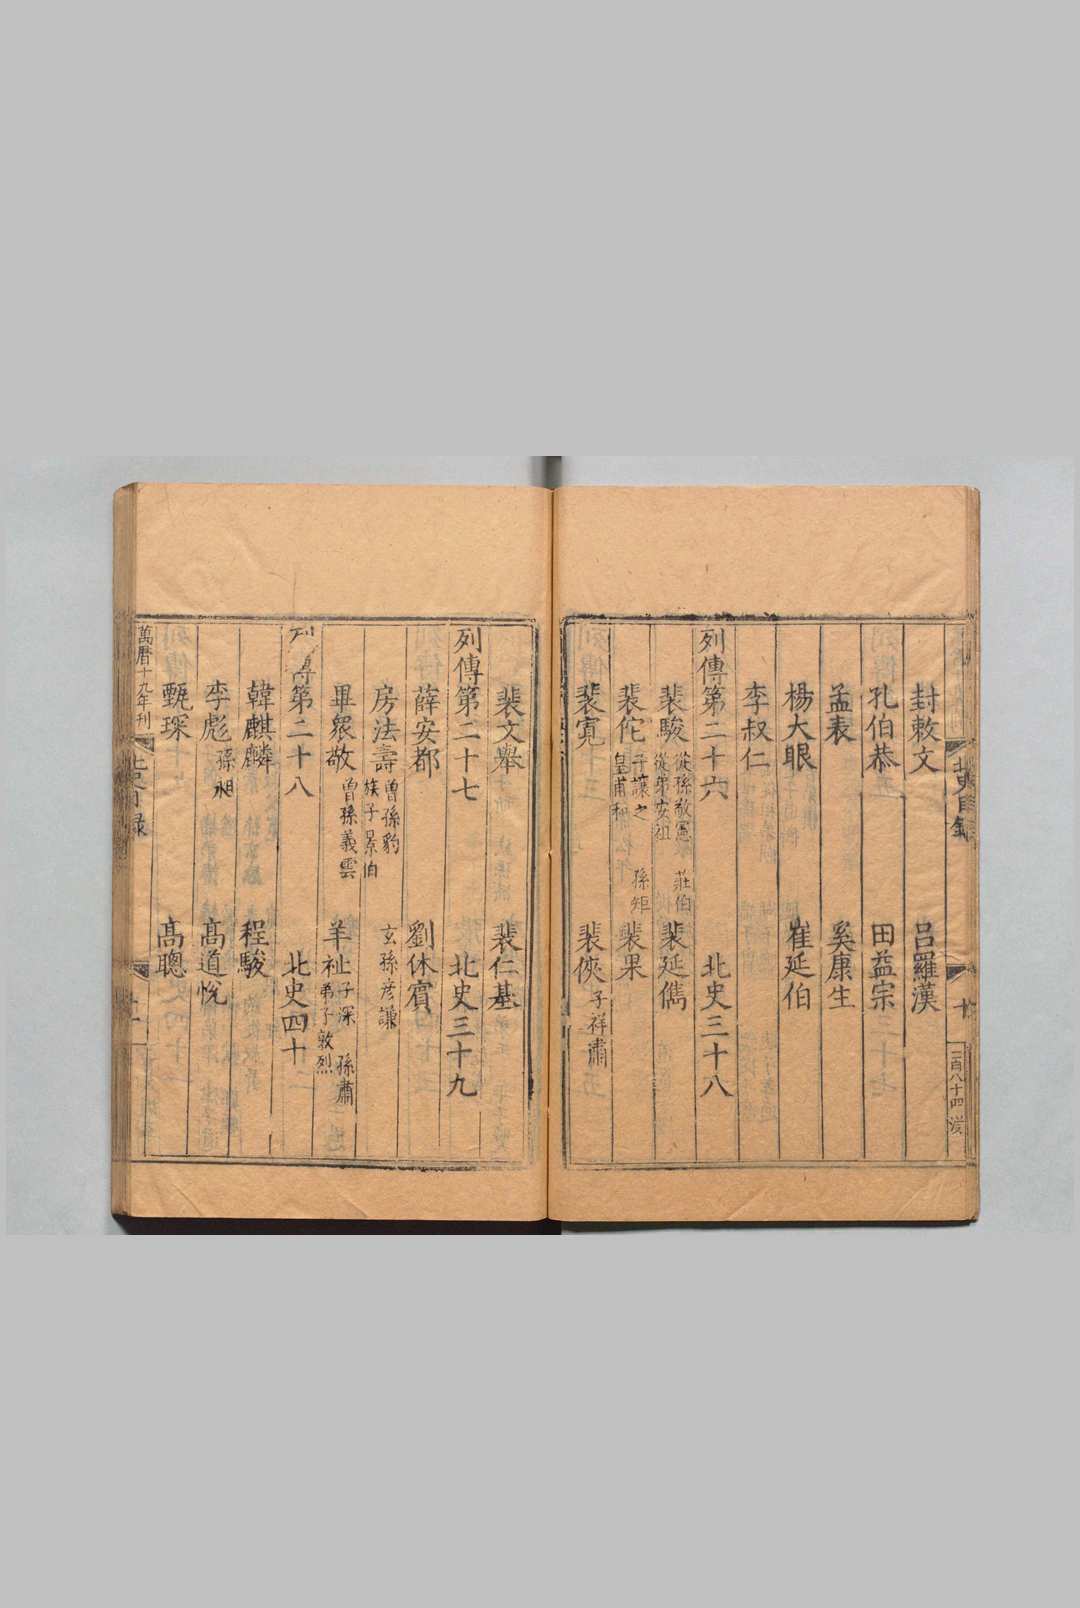 封敕文 呂羅漢
孔伯恭 田益宗
孟表 奚康生
楊大眼 崔延伯
李叔仁
列傳第二十六 北史三十八
裴駿 從孫敬憲 莊伯 從弟安祖 裴延儁
裴佗 子讓之 孫矩 皇甫和 裴果
裴寬 裴俠 子祥 肅
北史目錄 十 二百八十四
裴文舉 裴仁基
列傳第二十七 北史三十九
薛安都 劉休賓
房法壽 曾孫豹 玄孫彥謙 族子景伯
畢眾敬 曾孫義雲 羊祉 子深 孫肅 弟子敦 烈
列傳第二十八 北史四十
韓麒麟 程駿
李彪 孫昶 高道悅
甄琛 高聰
萬曆十九年刊 北史目錄